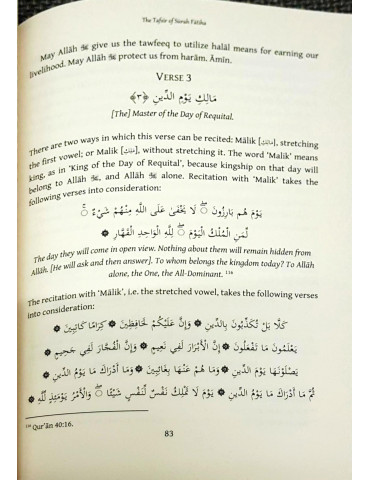 The Tafsīr of Sūrah Fātiha
May Allāh ﷻ give us the tawfeeq to utilize halāl means for earning our
livelihood. May Allāh ﷻ protect us from harām. Āmīn.
VERSE 3
مَالِكِ يَوْمِ الدِّينِ ﴿٣﴾
[The] Master of the Day of Requital.
There are two ways in which this verse can be recited: Mālik [مَالِك], stretching
the first vowel; or Malik [مَلِك], without stretching it. The word 'Malik' means
king, as in 'King of the Day of Requital', because kingship on that day will
belong to Allāh ﷻ, and Allāh ﷻ alone. Recitation with 'Malik' takes the
following verses into consideration:
يَوْمَ هُم بَارِزُونَ ۖ لَا يَخْفَىٰ عَلَى اللَّهِ مِنْهُمْ شَيْءٌ ۚ
لِّمَنِ الْمُلْكُ الْيَوْمَ ۖ لِلَّهِ الْوَاحِدِ الْقَهَّارِ ۞
The day they will come in open view. Nothing about them will remain hidden from
Allāh. [He will ask and then answer]. To whom belongs the kingdom today? To Allāh
alone, the One, the All-Dominant. 116
The recitation with 'Mālik', i.e. the stretched vowel, takes the following verses
into consideration:
كَلَّا بَلْ تُكَذِّبُونَ بِالدِّينِ ۞ وَإِنَّ عَلَيْكُمْ لَحَافِظِينَ ۞ كِرَامًا كَاتِبِينَ ۞
يَعْلَمُونَ مَا تَفْعَلُونَ ۞ إِنَّ الْأَبْرَارَ لَفِي نَعِيمٍ ۞ وَإِنَّ الْفُجَّارَ لَفِي جَحِيمٍ ۞
يَصْلَوْنَهَا يَوْمَ الدِّينِ ۞ وَمَا هُمْ عَنْهَا بِغَائِبِينَ ۞ وَمَا أَدْرَاكَ مَا يَوْمُ الدِّينِ ۞
ثُمَّ مَا أَدْرَاكَ مَا يَوْمُ الدِّينِ ۞ يَوْمَ لَا تَمْلِكُ نَفْسٌ لِّنَفْسٍ شَيْئًا ۖ وَالْأَمْرُ يَوْمَئِذٍ لِّلَّهِ ۞
116 Qur'ān 40:16.
83